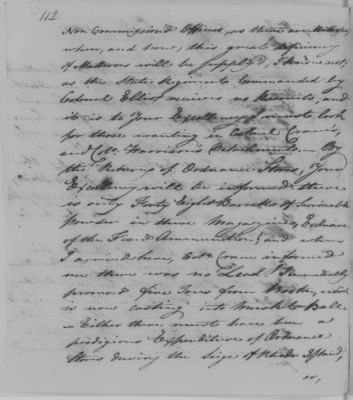 112
Non Commission'd Officers, as there are Matross,
when, and how, this great deficiency
of Matrosses will be supply'd, I know not,
as the State Regiment Commanded by
Colonel Elliot receives no Recruits, and
it is to Your Excellency I must look
for those wanting in Colonel Crane's,
and Col. Harrison's Detachments — By
the Return of Ordnance Stores, Your
Excellency will be informed there
is only Forty Eight Barrels of Serviceable
powder in these Magazines, Exclusive
of the Fixed Ammunition; and when
I arrived here, Col. Crane informed
me there was no Lead, I immediately
procured five Tons from Boston, which
is now casting into Musket Ball
— Either there must have been a
prodigious Expenditure of Ordnance
Stores during the Siege of Rhode Island,
or,